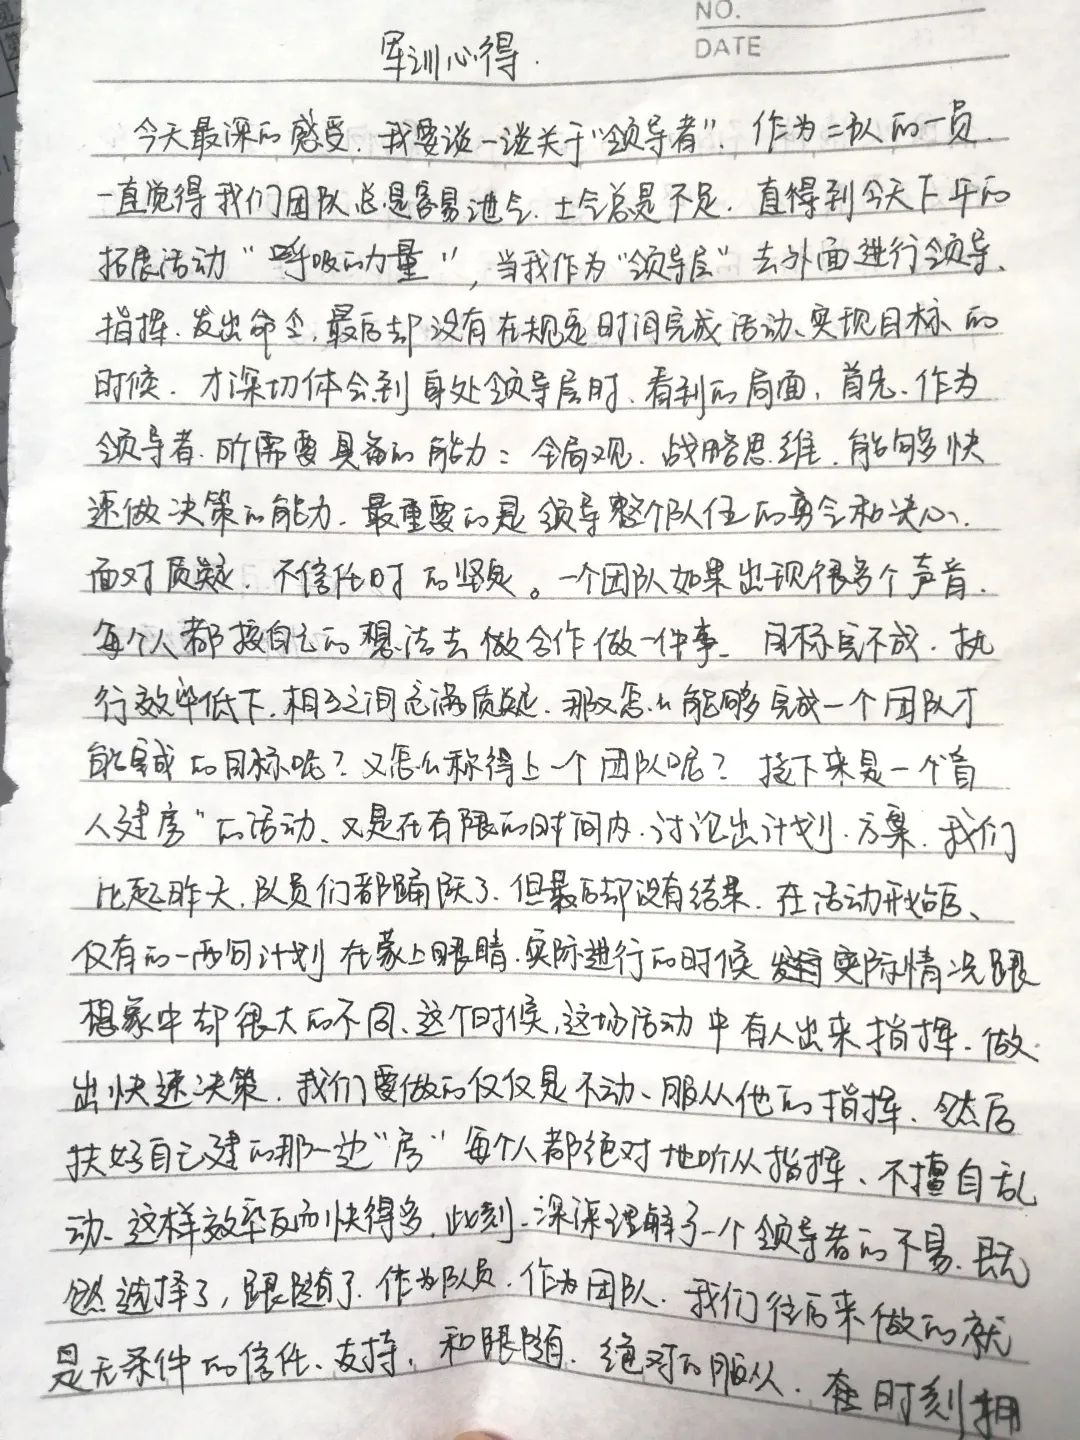 NO.
DATE
军训心得.
今天最深的感受.我要谈一谈关于"领导者".作为二队的一员.
一直觉得我们团队总是容易泄气.士气总是不足.直得到今天下午的
拓展活动"呼吸的力量",当我作为"领导层"去外面进行领导、
指挥.发出命令.最后却没有在规定时间完成活动、实现目标的
时候.才深切体会到身处领导层时、看到的局面,首先.作为
领导者.所需要具备的能力:全局观.战略思维.能够快
速做决策的能力.最重要的是领导整个队伍的勇气和决心.
面对质疑.不信任时的坚定。一个团队如果出现很多个声音.
每个人都按自己的想法去做合作做一件事.目标完不成.执
行效率低下.相互之间充满质疑.那又怎么能够完成一个团队才
能完成的目标呢?又怎么称得上一个团队呢?接下来是一个"盲
人建房"的活动、又是在有限的时间内.讨论出计划.方案.我们
比起昨天.队员们都踊跃了.但最后却没有结果.在活动开始后、
仅有的一两句计划在蒙上眼睛.实际进行的时候发现实际情况跟
想象中却很大的不同、这个时候,这场活动中有人出来指挥.做
出快速决策.我们要做的仅仅是不动、服从他的指挥.然后
扶好自己建的那一边"房"每个人都绝对地听从指挥、不擅自乱
动、这样效率反而快得多.此刻.深深理解了一个领导者的不易.既
然选择了,跟随了.作为队员.作为团队.我们往后来做的就
是无条件的信任、支持,和跟随.绝对的服从.在时刻拥